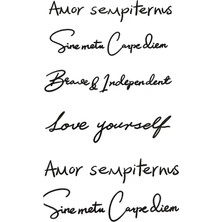 Amor sempiternus
Sine metu Carpe diem
Brave & Independent
Love yourself
Amor sempiternus
Sine metu Carpe diem